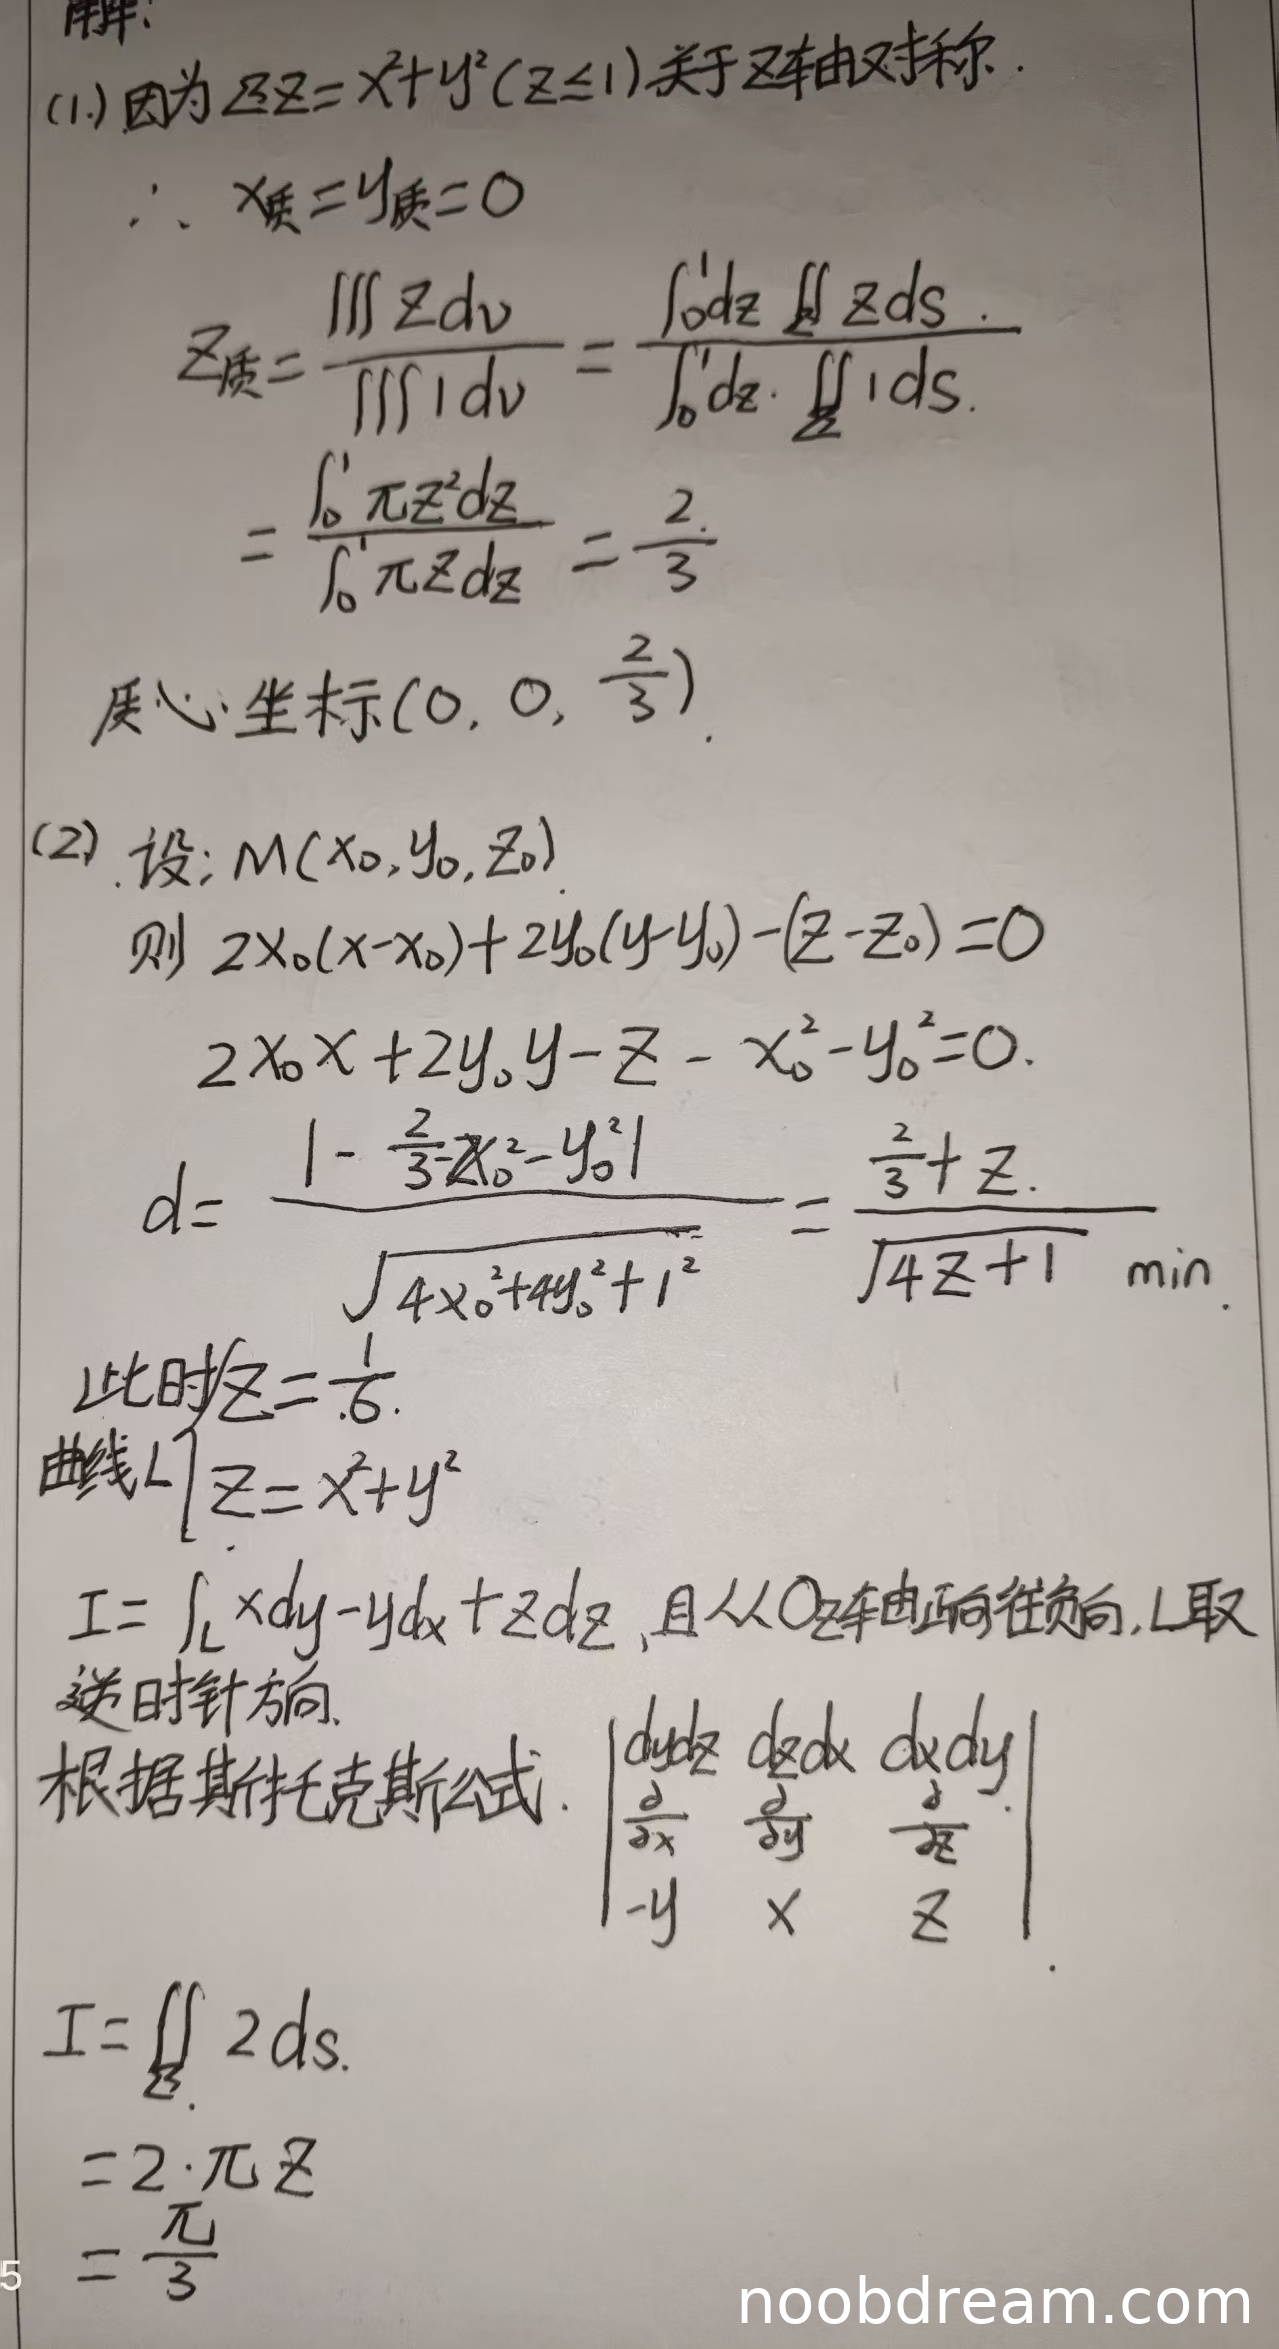 解:
(1.) 因为 Σz=x²+y²(z≤1)关于z轴对称.
∴ x质=y质=0
z质= ∭zdv / ∭1dv = ∫₀¹dz ∬zds. / ∫₀¹dz·∬_Σ 1ds.
= ∫₀¹πz²dz / ∫₀¹πzdz = 2/3
质心坐标(0, 0, 2/3).
(2). 设: M(x₀, y₀, z₀).
则 2x₀(x-x₀)+2y₀(y-y₀)-(z-z₀)=0
2x₀x+2y₀y-z-x₀²-y₀²=0.
d= |-2/3-x₀²-y₀²| / √(4x₀²+4y₀²+1²) = (2/3+z) / √(4z+1) min.
此时 z=1/6.
曲线L z=x²+y²
I=∫_L xdy-ydx+zdz,且从Oz轴正向往负向,L取
逆时针方向.
根据斯托克斯公式. | dydz dzdx dxdy |
| ∂/∂x ∂/∂y ∂/∂z |
| -y x z |.
I=∬_Σ 2ds.
=2·πz
=π/3
5
noobdream.com